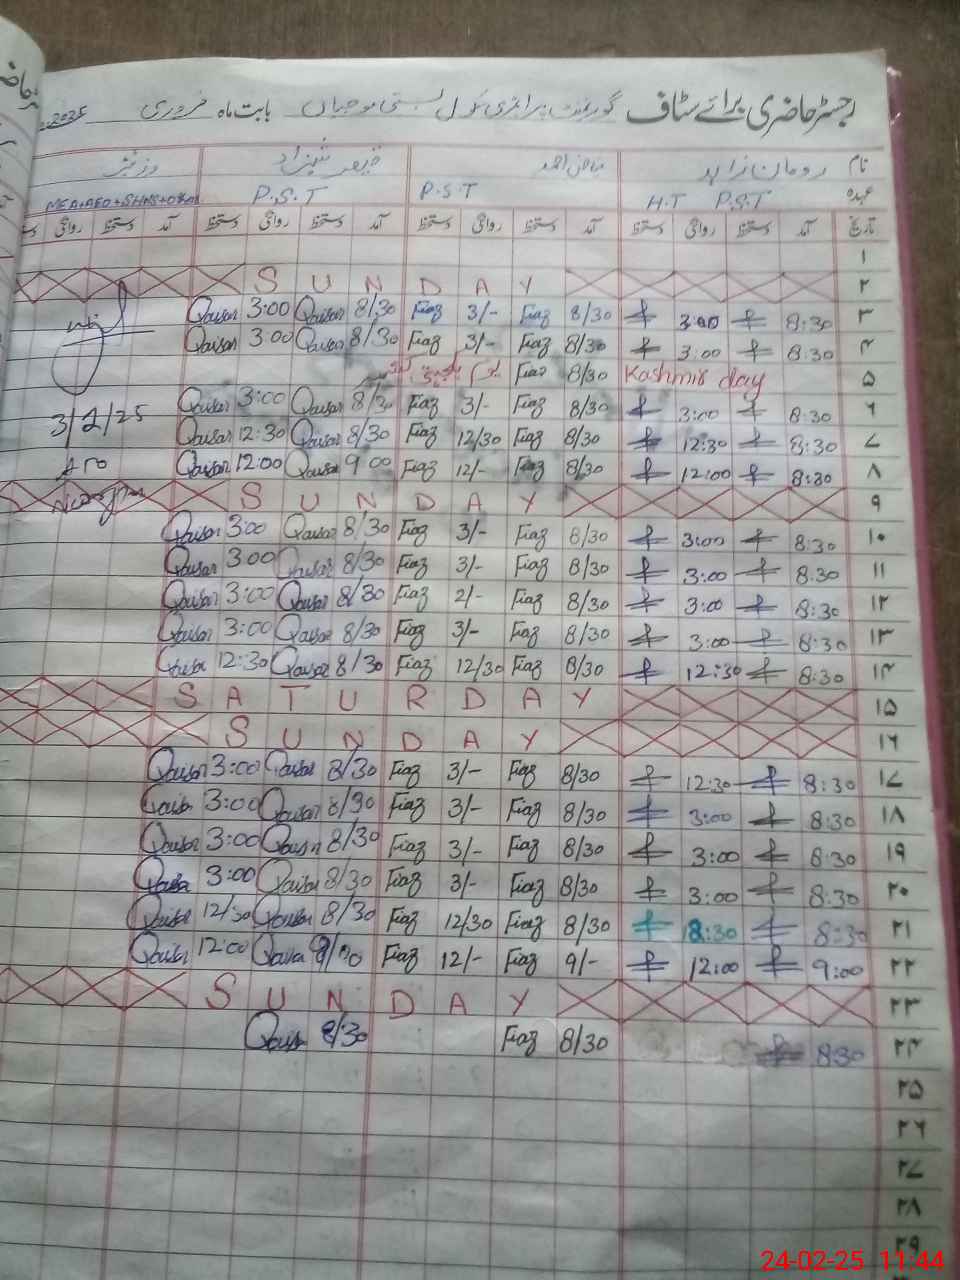 رجسٹر حاضری برائے سٹاف گورنمنٹ پرائمری سکول بستی موجیاں بابت ماہ فروری 2025
نام رومان زاہد فیاض احمد قیصر شہزاد وزیٹر
عہدہ H.T P.S.T P.S.T P.S.T
تاریخ آمد دستخط روانگی دستخط آمد دستخط روانگی دستخط آمد دستخط روانگی دستخط آمد دستخط روانگی
۱
۲ SUNDAY
Qaisar 3:00 Qaisar 8/30 Fiaz 3/- Fiaz 8/30 3:00 8:30 ۳
Qaisar 3:00 Qaisar 8/30 Fiaz 3/- Fiaz 8/30 3:00 8:30 ۴
Fiaz 8/30 Kashmir day ۵
3/2/25 Qaisar 3:00 Qaisar 8/30 Fiaz 3/- Fiaz 8/30 3:00 8:30 ۶
Qaisar 12:30 Qaisar 8/30 Fiaz 12/30 Fiaz 8/30 12:30 8:30 ۷
Qaisar 12:00 Qaisar 9 00 Fiaz 12/- Fiaz 8/30 12:00 8:30 ۸
SUNDAY ۹
Qaisar 3:00 Qaisar 8/30 Fiaz 3/- Fiaz 8/30 3:00 8:30 ۱۰
Qaisar 3:00 Qaisar 8/30 Fiaz 3/- Fiaz 8/30 3:00 8:30 ۱۱
Qaisar 3:00 Qaisar 8/30 Fiaz 2/- Fiaz 8/30 3:00 8:30 ۱۲
Qaisar 3:00 Qaisar 8/30 Fiaz 3/- Fiaz 8/30 3:00 8:30 ۱۳
Qaisar 12:30 Qaisar 8/30 Fiaz 12/30 Fiaz 8/30 12:30 8:30 ۱۴
SATURDAY ۱۵
SUNDAY ۱۶
Qaisar 3:00 Qaisar 8/30 Fiaz 3/- Fiaz 8/30 12:30 8:30 ۱۷
Qaisar 3:00 Qaisar 8/30 Fiaz 3/- Fiaz 8/30 3:00 8:30 ۱۸
Qaisar 3:00 Qaisar 8/30 Fiaz 3/- Fiaz 8/30 3:00 8:30 ۱۹
Qaisar 3:00 Qaisar 8/30 Fiaz 3/- Fiaz 8/30 3:00 8:30 ۲۰
Qaisar 12/30 Qaisar 8/30 Fiaz 12/30 Fiaz 8/30 8:30 ۲۱
Qaisar 12:00 Qaisar Fiaz 12/- Fiaz 9/- 12:00 9:00 ۲۲
SUNDAY ۲۳
Qaisar 8/30 Fiaz 8/30 8:30 ۲۴
۲۵
۲۶
۲۷
۲۸
۲۹
24-02-25 11:44